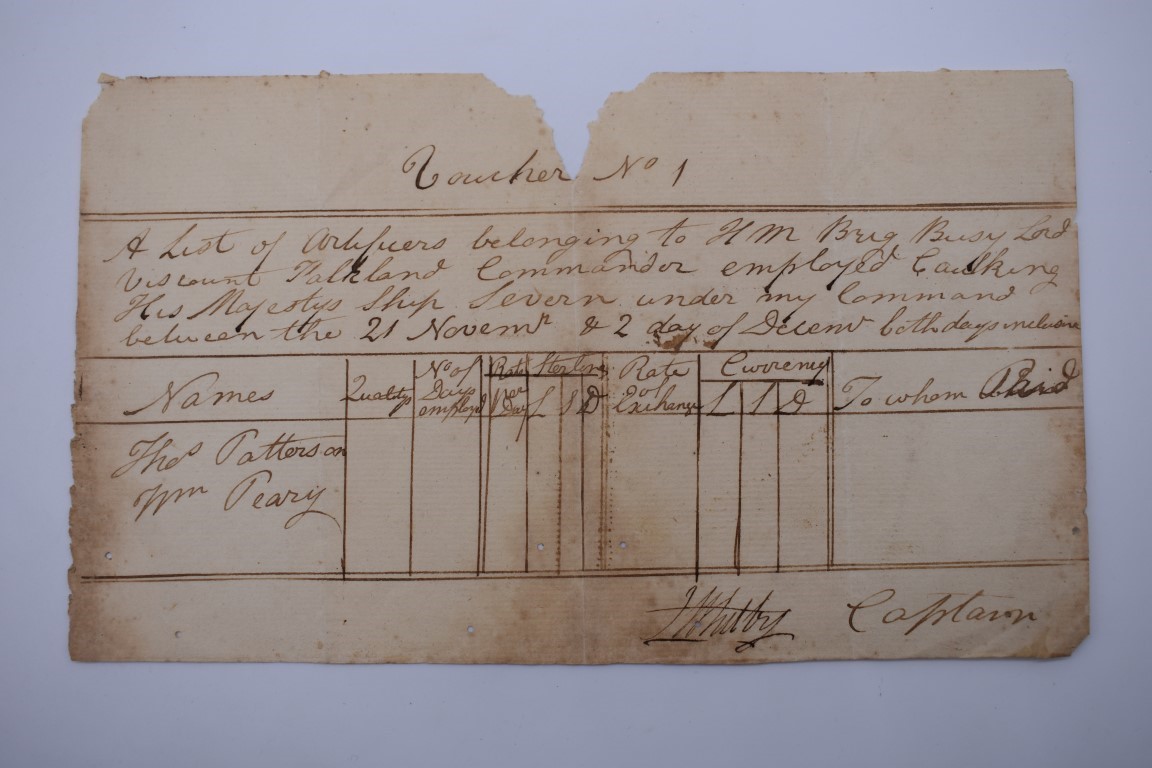 Voucher No 1
A List of Artificers belonging to H M Brig Busy Lord
Viscount Falkland Commandor employed Caulking
His Majestys Ship Severn under my Command
between the 21 Novemr & 2 day of Decemr both days inclusive
Names
Quality
No of
Days
employd
Rate
per
Day
Sterling
L S D
Rate
of
Exchange
Currency
L S D
To whom Paid
Thos Patterson
Wm Peary
Whitby Captain